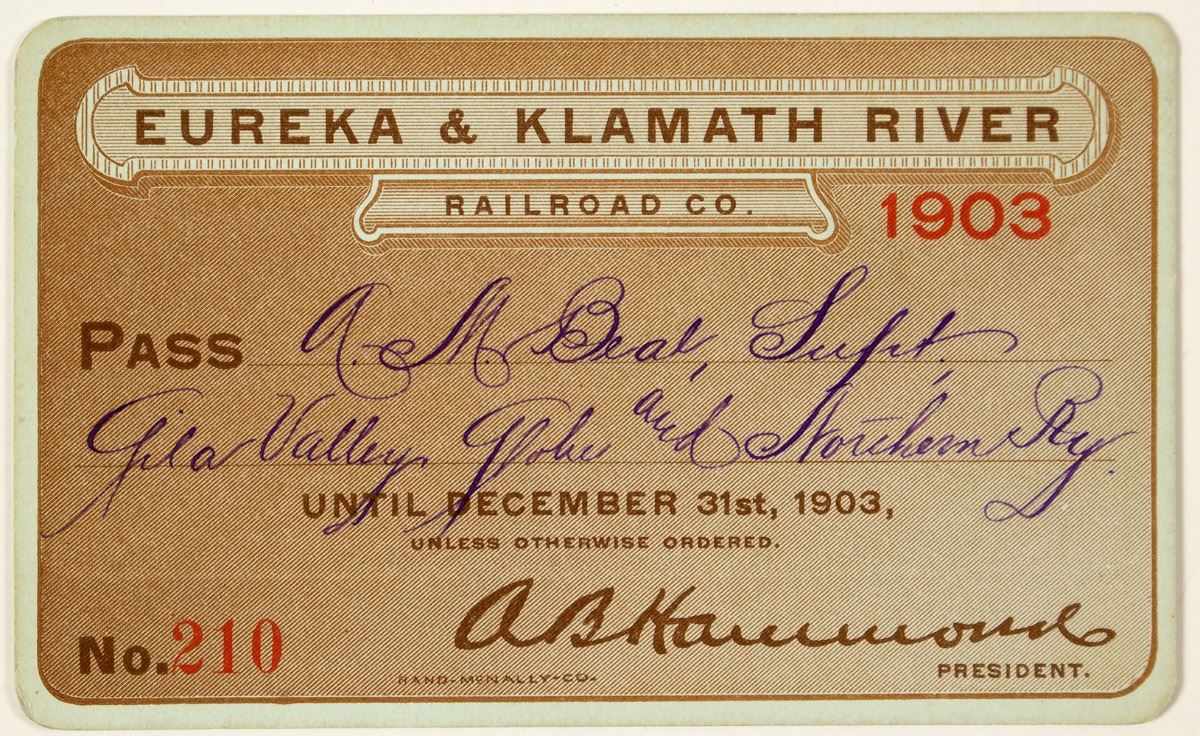 EUREKA & KLAMATH RIVER
RAILROAD CO.
1903
PASS A. M. Beal, Supt.
Gila Valley, Globe and Northern Ry.
UNTIL DECEMBER 31st, 1903,
UNLESS OTHERWISE ORDERED.
A B Hammond
No. 210
RAND-McNALLY-CO-
PRESIDENT.